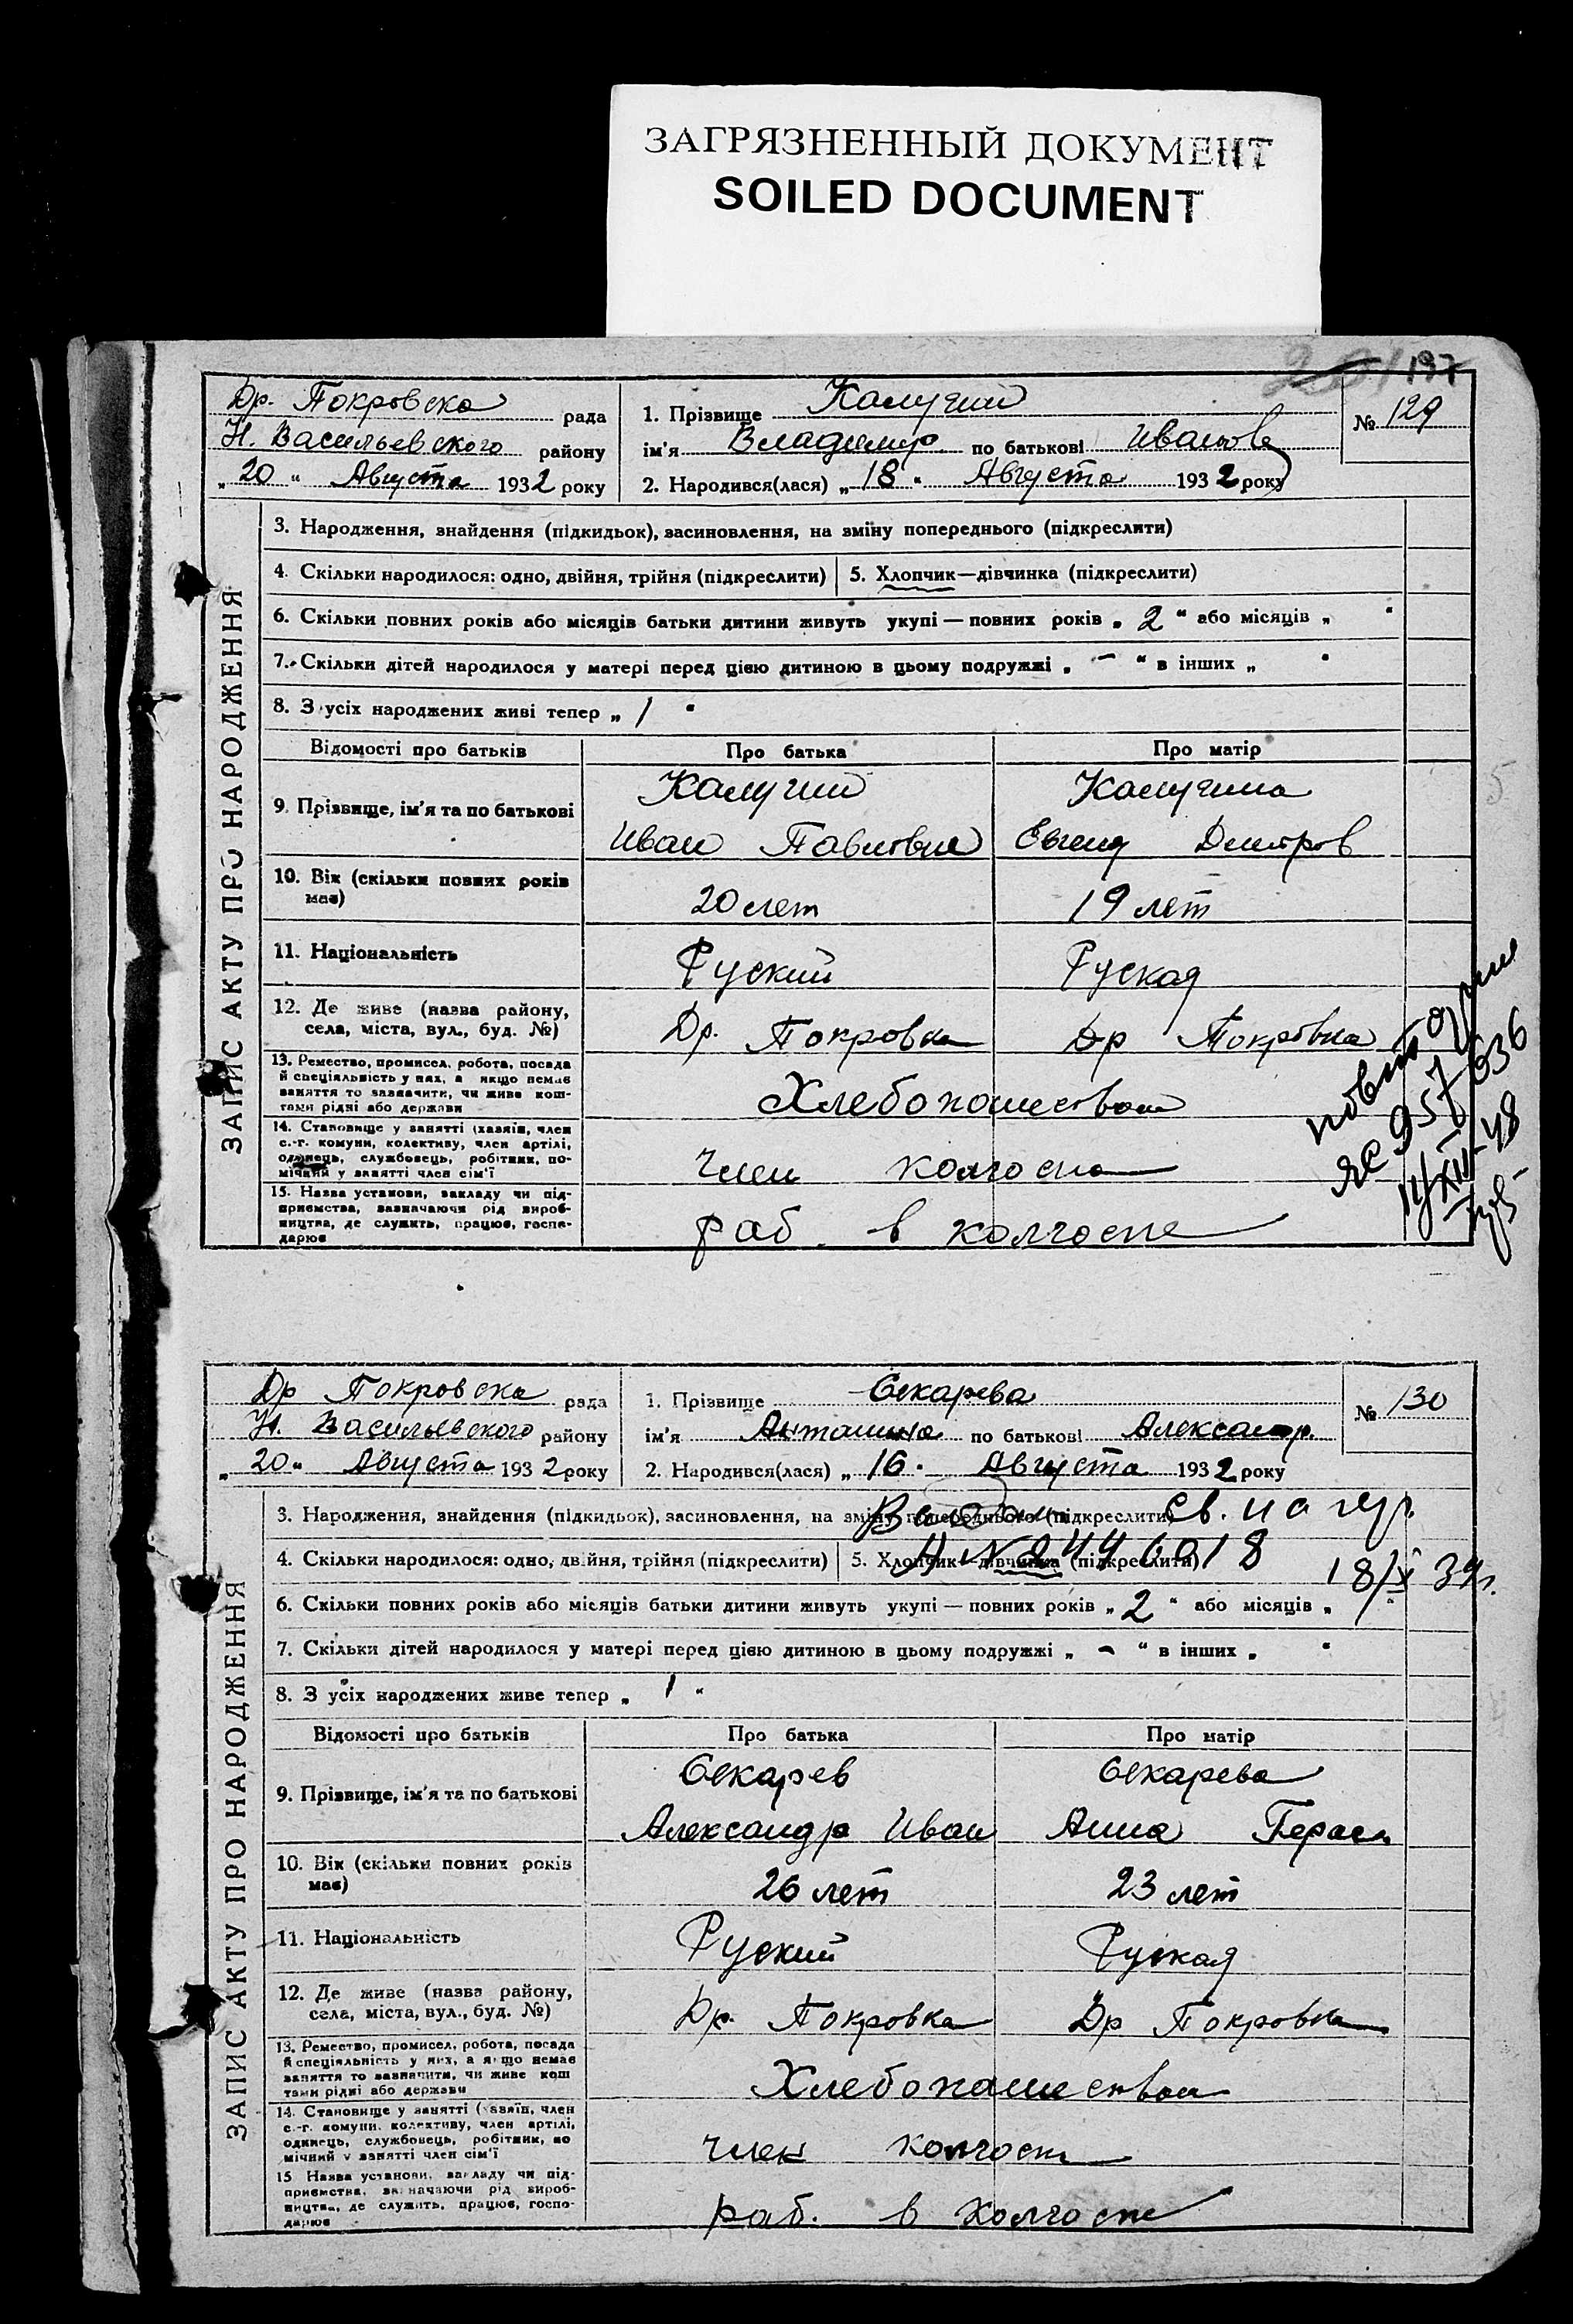 ЗАГРЯЗНЕННЫЙ ДОКУМЕНТ
SOILED DOCUMENT
197
Др. Покровска рада
Н. Васильевского району
„ 20 " Августа 1932 року
1. Прізвище
ім'я Владимир по батькові Иванов
2. Народився(лася) „ 18 " Августа 1932 року
№ 129
ЗАПИС АКТУ ПРО НАРОДЖЕННЯ
3. Народження, знайдення (підкидьок), засиновлення, на зміну попереднього (підкреслити)
4. Скільки народилося: одно, двійня, трійня (підкреслити) 5. Хлопчик—дівчинка (підкреслити)
6. Скільки повних років або місяців батьки дитини живуть укупі — повних років „ 2 " або місяців „ "
7. Скільки дітей народилося у матері перед цією дитиною в цьому подружжі „ – " в інших „ "
8. З усіх народжених живі тепер „ 1 "
Відомості про батьків Про батька Про матір
9. Прізвище, ім'я та по батькові
Иван Павлович Евгения Дмитров
10. Вік (скільки повних років має) 20 лет 19 лет
11. Національність Руский Руская
12. Де живе (назва району, села, міста, вул., буд. №) Др. Покровка Др Покровка
13. Ремество, промисел, робота, посада й спеціяльність у них, а якщо немає заняття то зазначити, чи живе коштами рідні або держави Хлебопашеством
14. Становище у занятті (хазяїн, член с.-г. комуни, колективу, член артілі, одинець, службовець, робітник, помічний у занятті член сім'ї член колгоспа
15. Назва установи, закладу чи підприємства, зазначаючи рід виробництва, де служить, працює, господарює раб. в колгоспе
957636
Др Покровска рада
Н. Васильевского району
„ 20 " Августа 1932 року
1. Прізвище Секарева
ім'я Антонина по батькові Александр.
2. Народився(лася) „ 16 " Августа 1932 року
№ 130
ЗАПИС АКТУ ПРО НАРОДЖЕННЯ
3. Народження, знайдення (підкидьок), засиновлення, на зміну попереднього (підкреслити)
4. Скільки народилося: одно, двійня, трійня (підкреслити) 5. Хлопчик—дівчинка (підкреслити)
6. Скільки повних років або місяців батьки дитини живуть укупі — повних років „ 2 " або місяців „ "
7. Скільки дітей народилося у матері перед цією дитиною в цьому подружжі „ – " в інших „ "
8. З усіх народжених живе тепер „ 1 "
Відомості про батьків Про батька Про матір
9. Прізвище, ім'я та по батькові Секарев Секарева
Александр Иван Анна Герас
10. Вік (скільки повних років має) 26 лет 23 лет
11. Національність Руский Руская
12. Де живе (назва району, села, міста, вул., буд. №) Др. Покровка Др Покровка
13. Ремество, промисел, робота, посада й спеціяльність у них, а якщо немає заняття то зазначити, чи живе коштами рідні або держави Хлебопашеством
14. Становище у занятті (хазяїн, член с.-г. комуни, колективу, член артілі, одинець, службовець, робітник, помічний у занятті член сім'ї член колгосп
15. Назва установи, закладу чи підприємства, зазначаючи рід виробництва, де служить, працює, господарює раб. в колгоспе